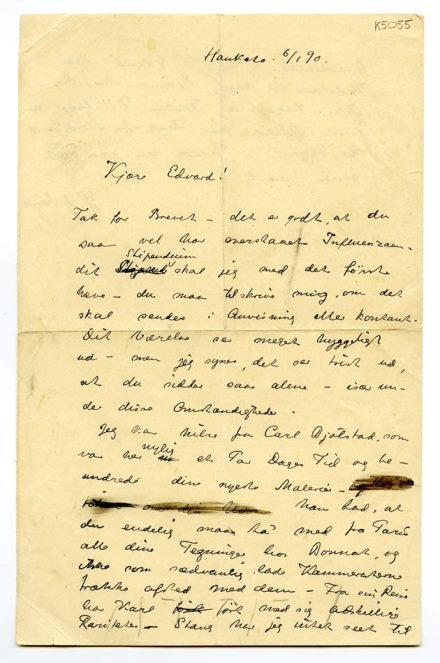 K5055
Haukelo. 6/1 90.
Kjære Edvard!
Tak for Brevet – det er godt, at du
saa vel har overstaaet Influenzaen –
Stipendium
dit skal jeg med det første
hæve – du maa tilskrive mig, om det
skal sendes i Anvisning eller kontant.
Dit Værelse ser meget hyggeligt
ud – men jeg synes, det ser trist ud,
at du sidder saa alene – især un-
der disse Omstændigheder.
Jeg kan hilse fra Carl Bjølstad, som
nylig
var her et Par Dages Tid og be-
undrede din nyeste Maleri –
han bad, at
du endelig maa ta med fra Paris
alle dine Tegninger hos Bonnat, og
ikke som sædvanlig lade Kammeraterne
trække afsted med dem – Fra sin Reise
har Karl ført med sig adskillige
Rariteter – Stang har jeg intet seet til